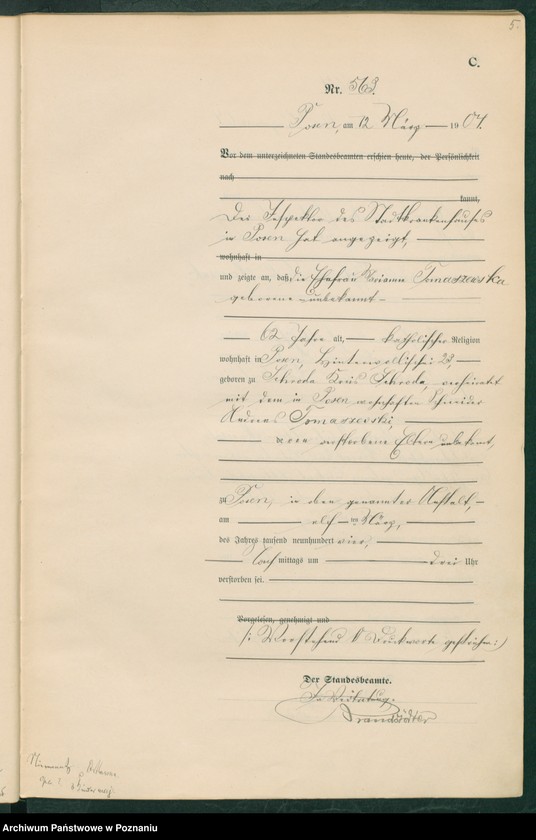 5.
C.
Nr. 563.
Posen, am 12 März 1904.
Vor dem unterzeichneten Standesbeamten erschien heute, der Persönlichkeit
nach
kannt,
Der Inspektor des Stadtkrankenhauses
in Posen hat angezeigt,
wohnhaft in
und zeigte an, daß die Ehefrau Marianna Tomaszewska
geborene unbekannt
62 Jahre alt, katholischer Religion
wohnhaft in Posen, Hinterwallischei 23,
geboren zu Schroda Kreis Schroda, verheiratet
mit dem in Posen wohnhaften Schneider
Andreas Tomaszewski,
deren verstorbene Eltern unbekannt,
zu Posen, in oben genannter Anstalt,
am elf ten März,
des Jahres tausend neunhundert vier,
Nach mittags um drei Uhr
verstorben sei.
Vorgelesen, genehmigt und
/: Vorstehend Druckworte gestrichen :/
Der Standesbeamte.
In Vertretung.